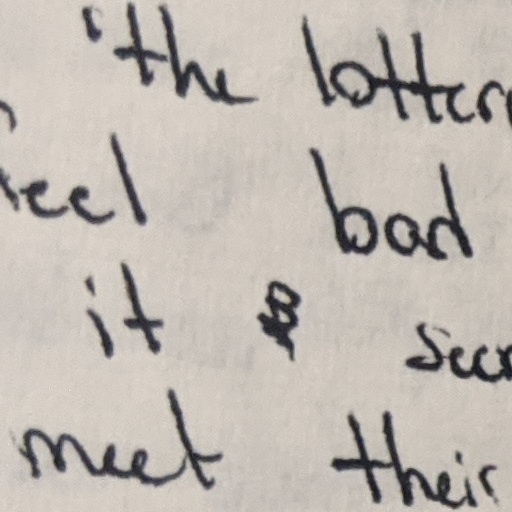 the lotter
feel bad
it seer
meet their